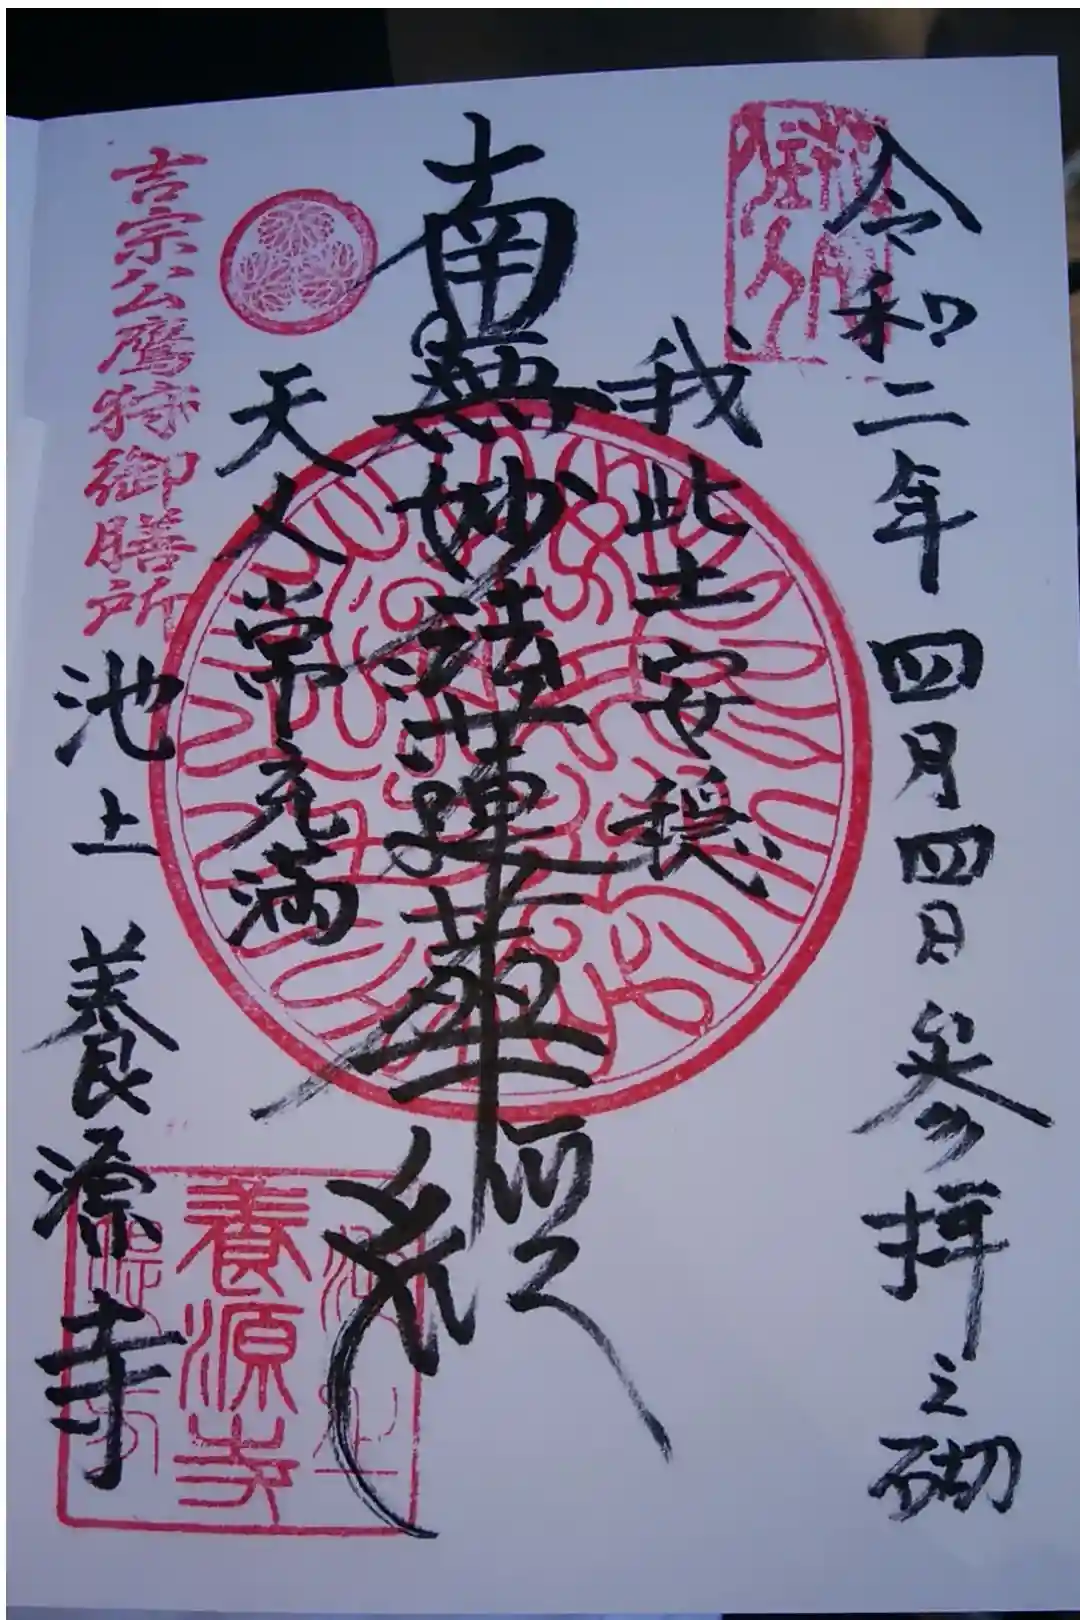 令和二年四月四日参拝之砌
我此土安穏
南無妙法蓮華経
天人常充満
吉宗公鷹狩御膳所
池上 養源寺
養源寺